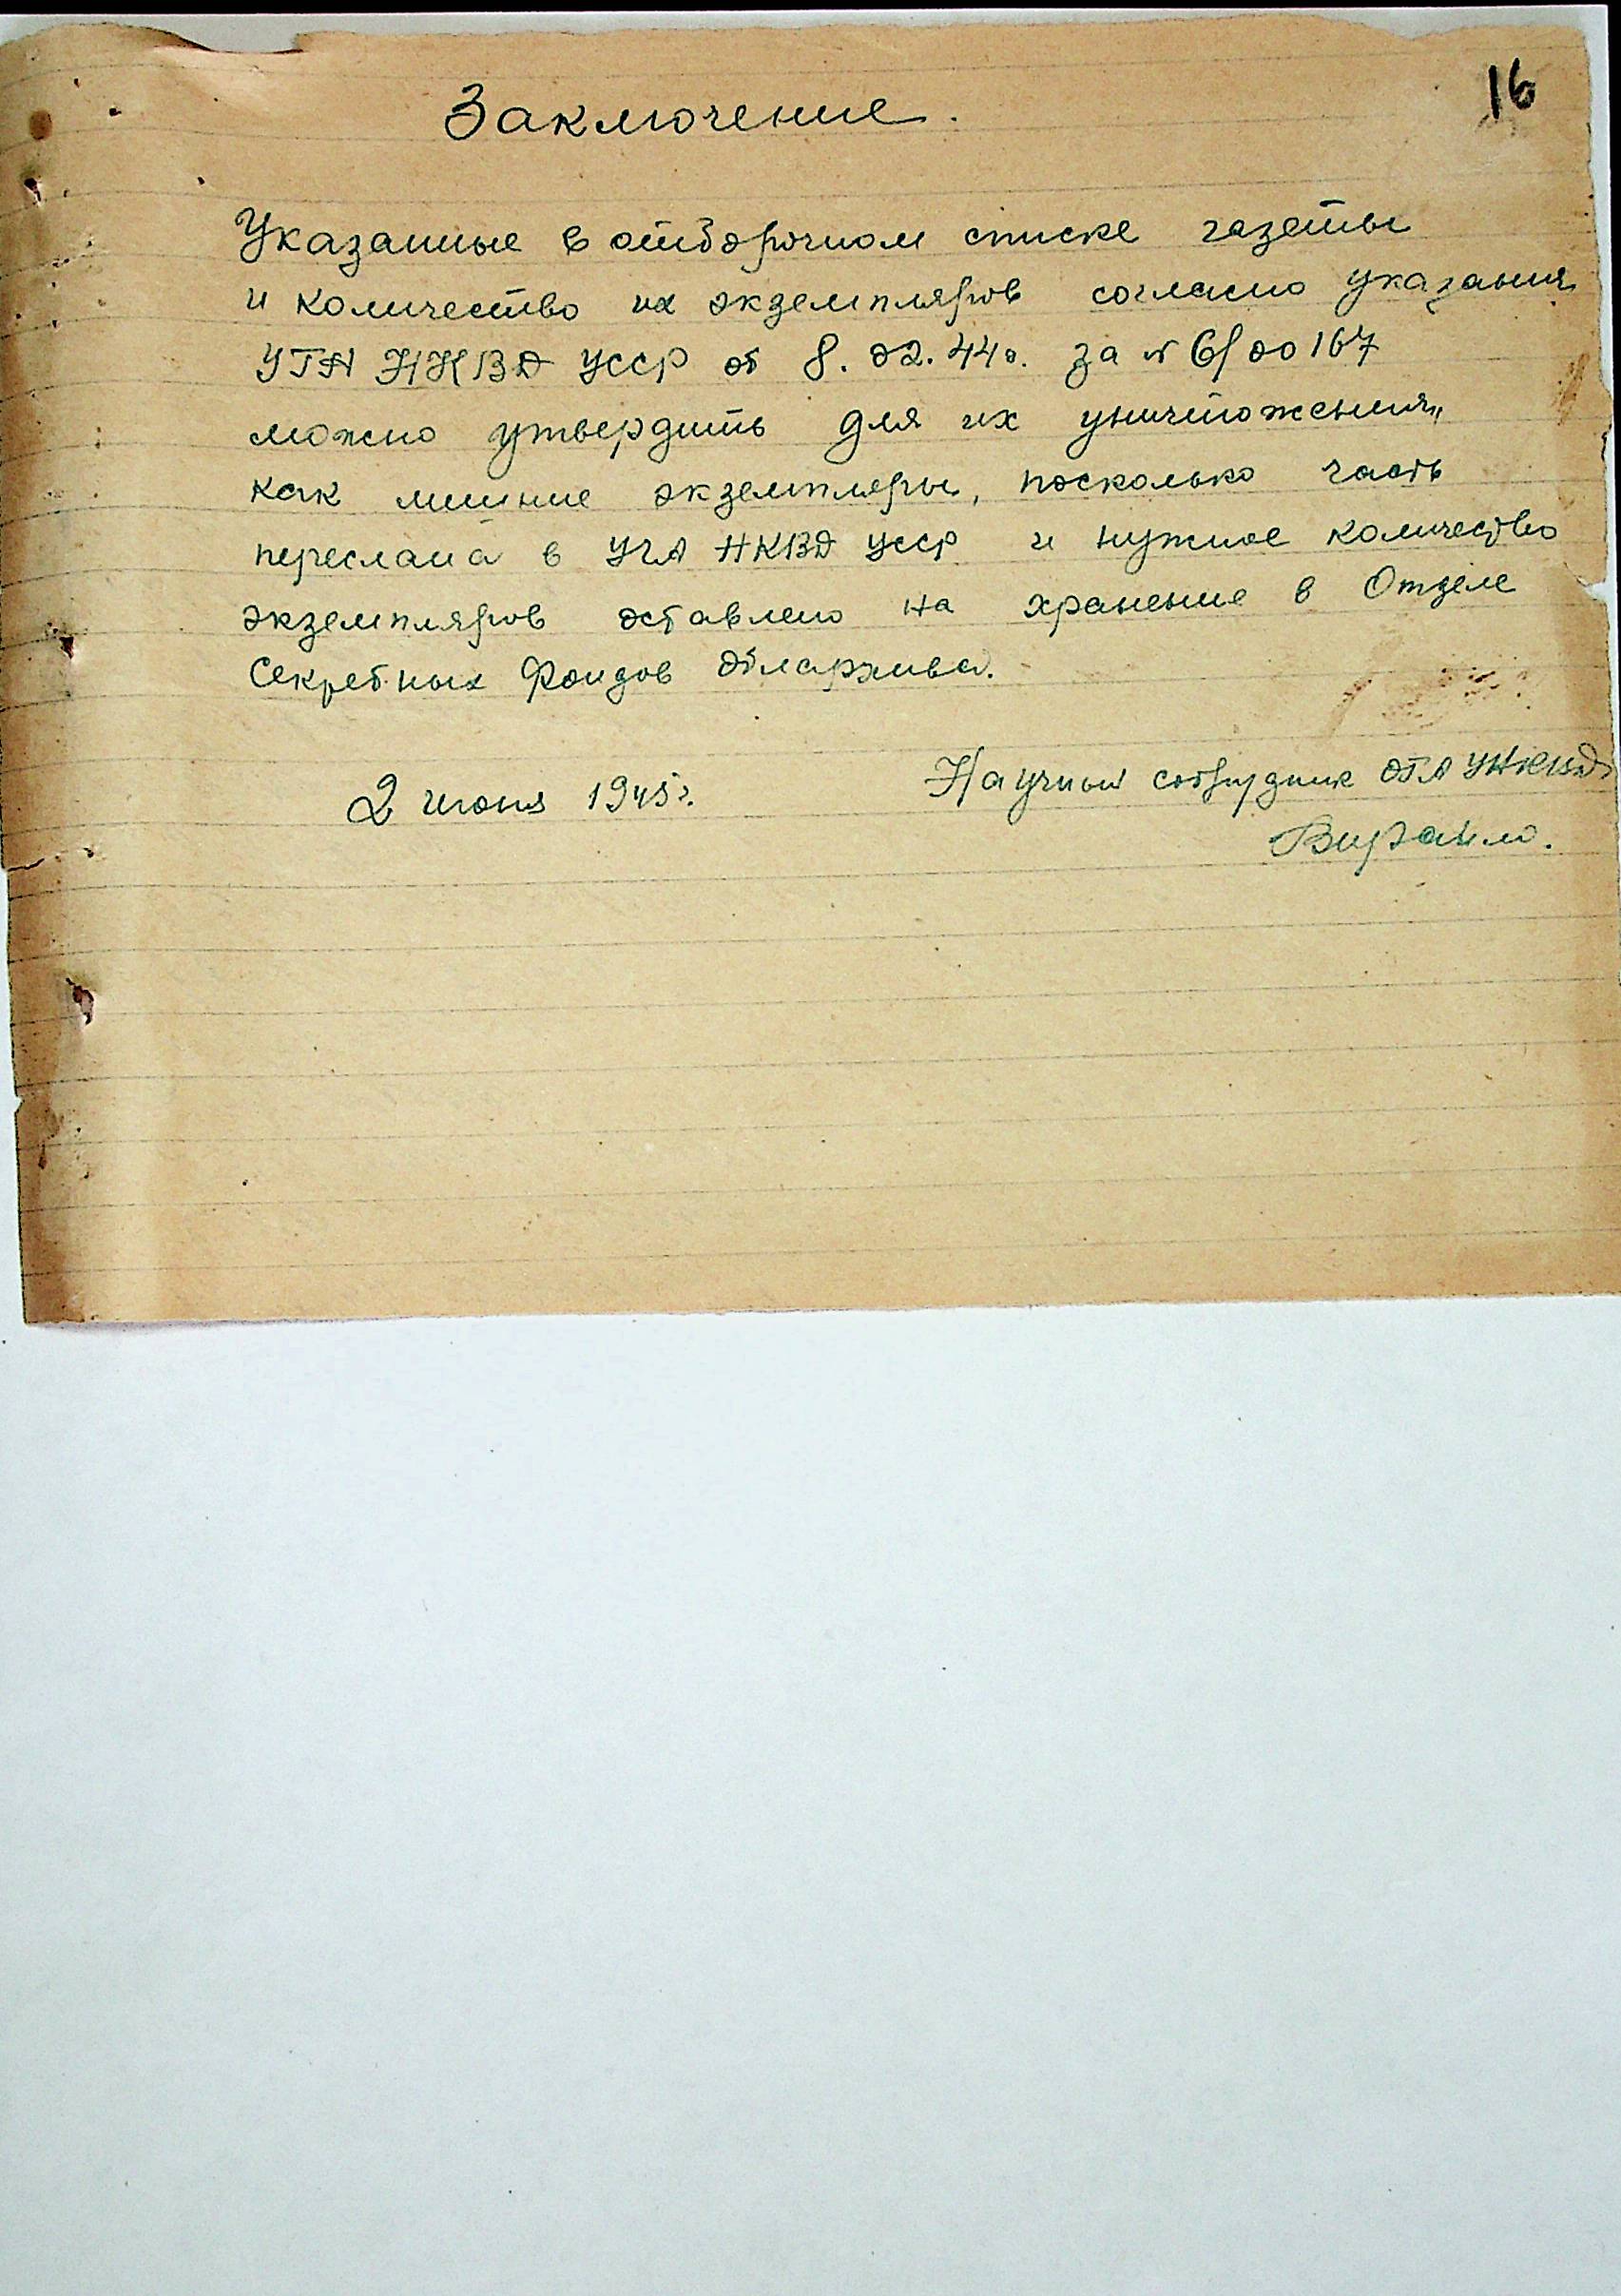 16
Заключение.
Указанные в отборочном списке газеты
и количество их экземпляров согласно указания
УГА НКВД УССР от 8.02.44г. за № 6/00167
можно утвердить для их уничтожения,
как лишние экземпляры, посколько часть
переслана в УГА НКВД УССР и нужное количество
экземпляров оставлено на хранение в Отделе
Секретных Фондов Облархива.
2 июня 1945г.
Научный сотрудник ОГА УНКВД